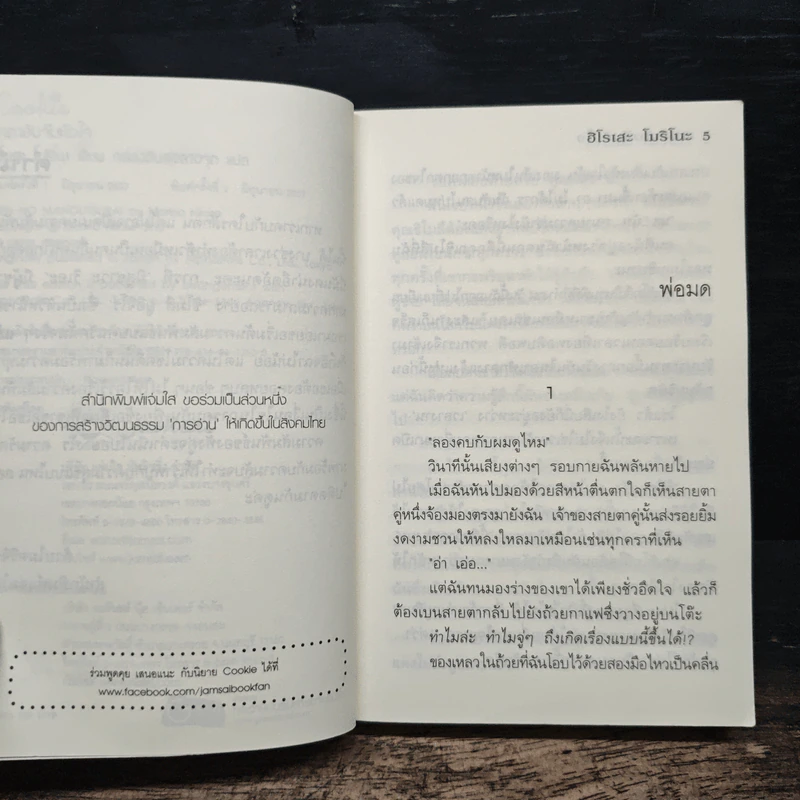 สำนักพิมพ์แจ่มใส ขอร่วมเป็นส่วนหนึ่ง
ของการสร้างวัฒนธรรม 'การอ่าน' ให้เกิดขึ้นในสังคมไทย
ร่วมพูดคุย เสนอแนะ กับนิยาย Cookie ได้ที่
www.facebook.com/jamsaibookfan
ฮิโรเสะ โมริโนะ 5
พ่อมด
1
"ลองคบกับผมดูไหม"
วินาทีนั้นเสียงต่างๆ รอบกายฉันพลันหายไป
เมื่อฉันหันไปมองด้วยสีหน้าตื่นตกใจก็เห็นสายตา
คู่หนึ่งจ้องมองตรงมายังฉัน เจ้าของสายตาคู่นั้นส่งรอยยิ้ม
งดงามชวนให้หลงใหลมาเหมือนเช่นทุกคราที่เห็น
"อ๋า เอ่อ..."
แต่ฉันทนมองร่างของเขาได้เพียงชั่วอึดใจ แล้วก็
ต้องเบนสายตากลับไปยังถ้วยกาแฟซึ่งวางอยู่บนโต๊ะ
ทำไมล่ะ ทำไมจู่ๆ ถึงเกิดเรื่องแบบนี้ขึ้นได้!?
ของเหลวในถ้วยที่ฉันโอบไว้ด้วยสองมือไหวเป็นคลื่น